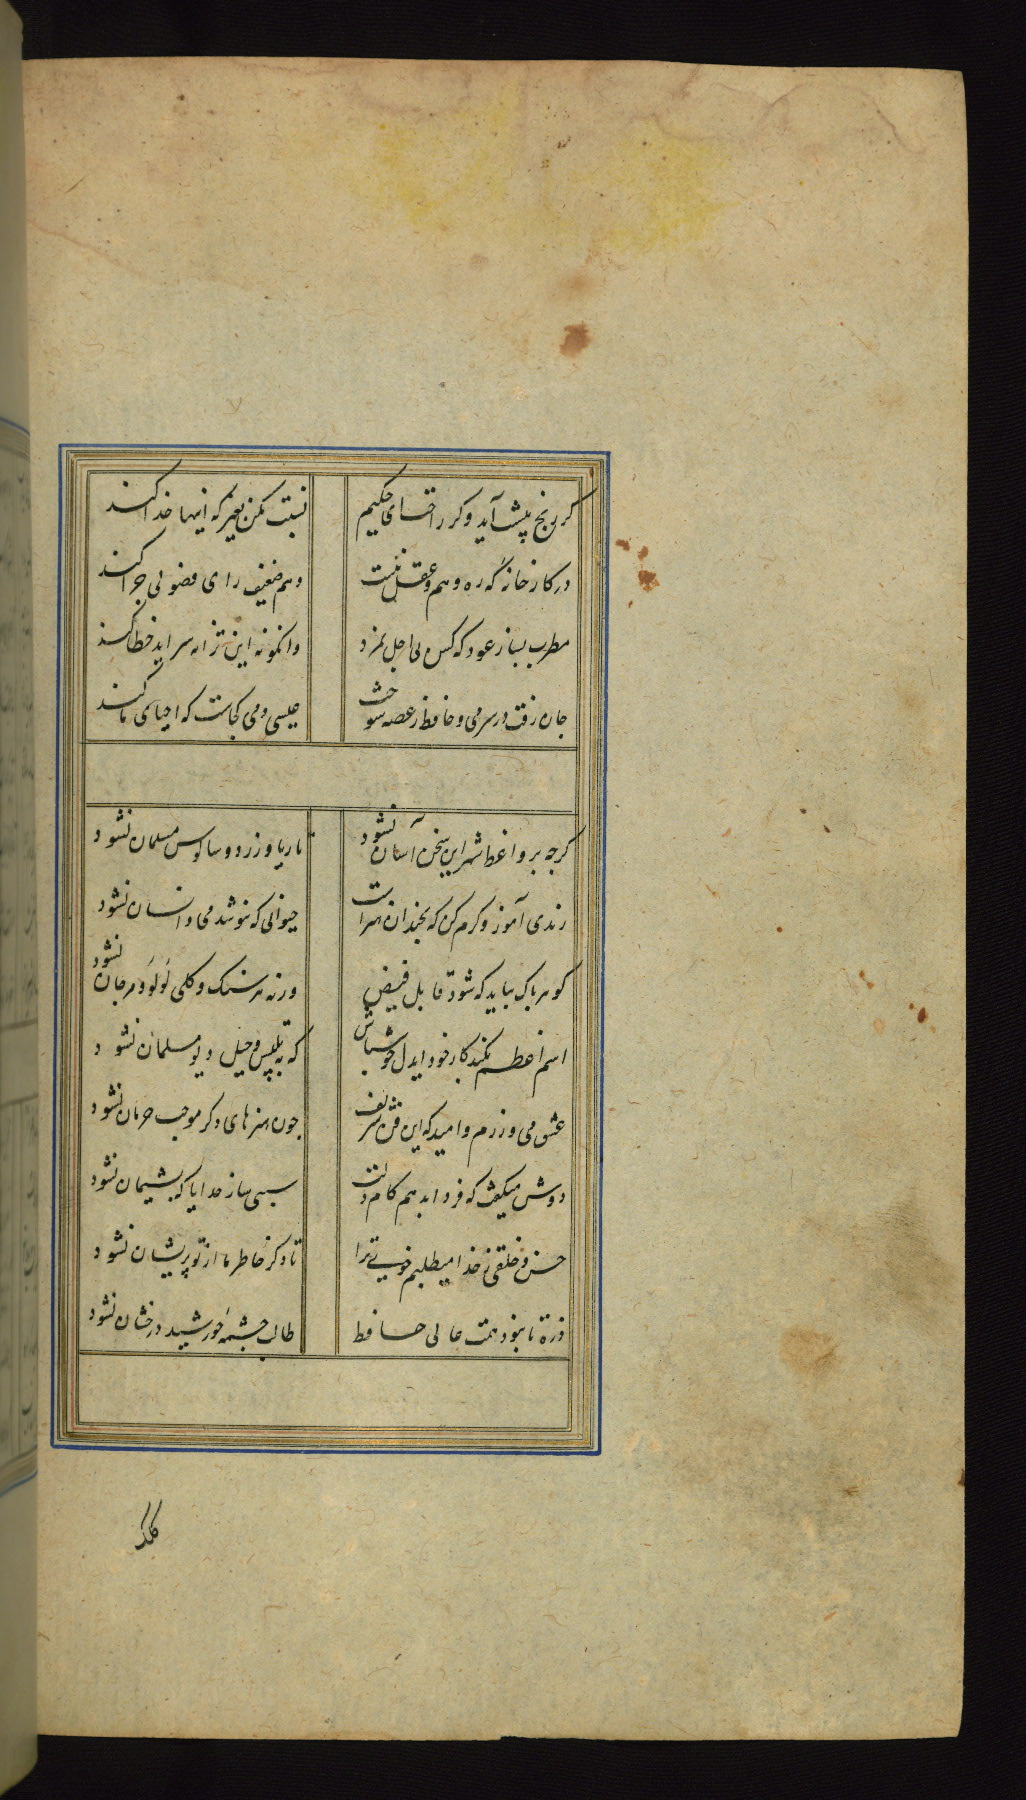 کر رنج پیشت آید و کر راحت ای حکیم نسبت مکن بغیر که اینها خدا کند
در کارخانه که ره وهم و عقل نیست وهم ضعیف رای فضولی جرا کند
مطرب بساز عود که کس بی اجل نمرد وانکو نه این ترانه سراید خطا کند
جان رفت در سر می و حافظ ز غصه سوخت عیسی دمی کجاست که احیای ما کند
کرجه بر واعظ شهر این سخن آسان نشود تا ریا ورزد و سالوس مسلمان نشود
رندی آموز و کرم کن که نجندان هنر است حیوانی که ننوشد می و انسان نشود
کوهر باک بباید که شود قابل فیض ورنه هر سنک و کلی لؤلؤ و مرجان نشود
اسم اعظم بکند کار خود ای دل خوش باش که به تلبیس و حیل دیو مسلمان نشود
عشق می ورزم و امید که این فن شریف جون هنرهای دکر موجب حرمان نشود
دوش میکفت که فردا بدهم کام دلت سببی ساز خدایا که بشیمان نشود
حسن خلقی ز خدا میطلبم خوی ترا تا دکر خاطر ما از تو پریشان نشود
ذره تا نبود همت عالی حافظ طالب جشمه خورشید درخشان نشود
کلک